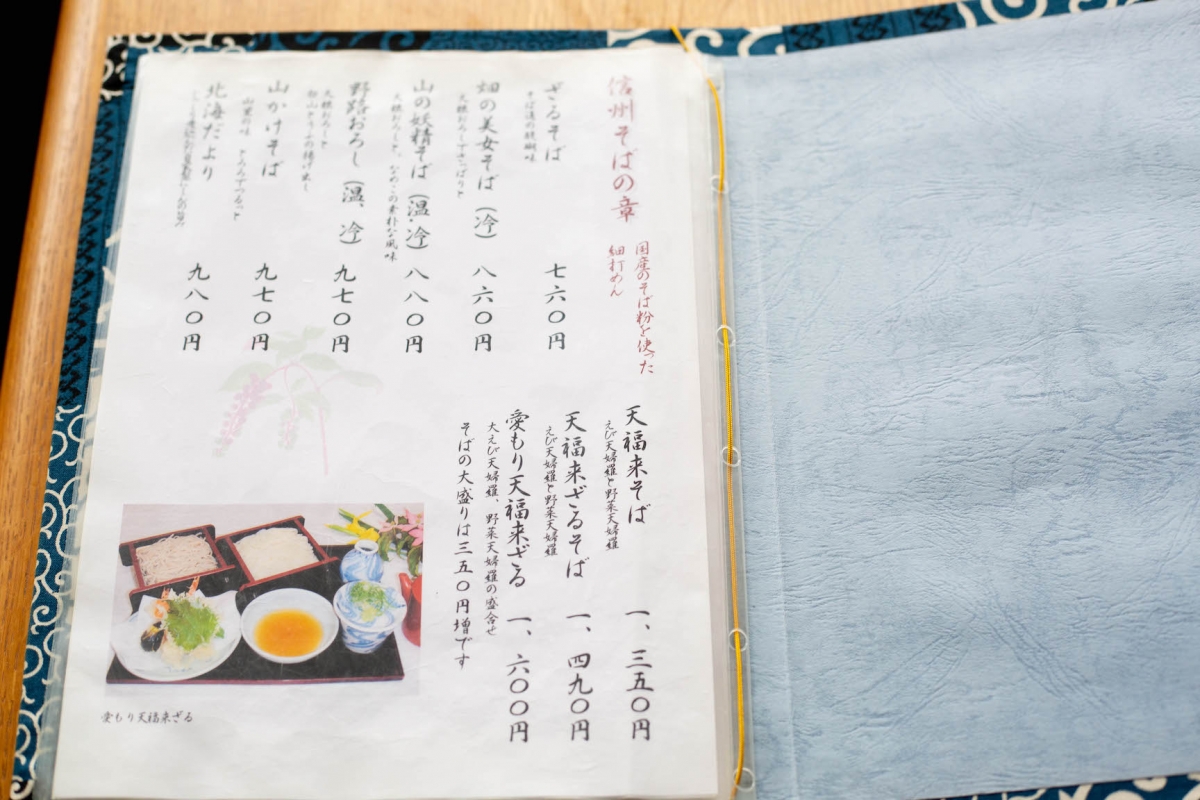 信州そばの章
国産のそば粉を使った
細打めん
ざるそば 七六〇円
そば通の醍醐味
畑の美女そば(冷) 八六〇円
大根おろしでさっぱりと
山の妖精そば(温・冷) 八八〇円
大根おろしと、なめこの素朴な風味
野路おろし(温、冷) 九七〇円
大根おろしと
山かけそば 九七〇円
山里の味 とろろでつるっと
北海だより 九八〇円
天福来そば 一、三五〇円
えび天婦羅と野菜天婦羅
天福来ざるそば 一、四九〇円
えび天婦羅と野菜天婦羅
愛もり天福来ざる 一、六〇〇円
大えび天婦羅、野菜天婦羅の盛合せ
そばの大盛りは三五〇円増です
愛もり天福来ざる